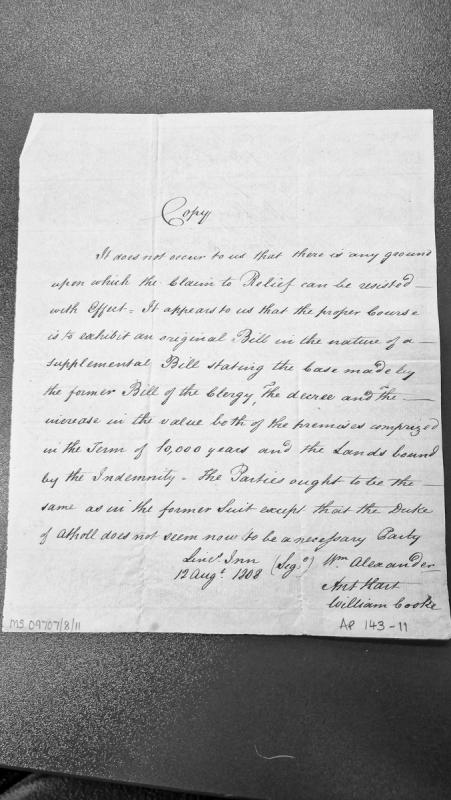 Copy
It does not occur to us that there is any ground
upon which the Claim to Relief can be resisted —
with Effect = It appears to us that the proper Course
is to exhibit an original Bill in the nature of a —
supplemental Bill stating the Case made by
the former Bill of the Clergy The decree and The —
increase in the value both of the premises comprized
in the Term of 10,000 years and the Lands bound
by the Indemnity = The Parties ought to be the —
same as in the former Suit except that the Duke
of Atholl does not seem now to be a necessary Party
Lincs. Inn (Sigd.) Wm. Alexander
12 Augt. 1808
Ant Hart
William Cooke
MS 09707/8/11
AP 143-11